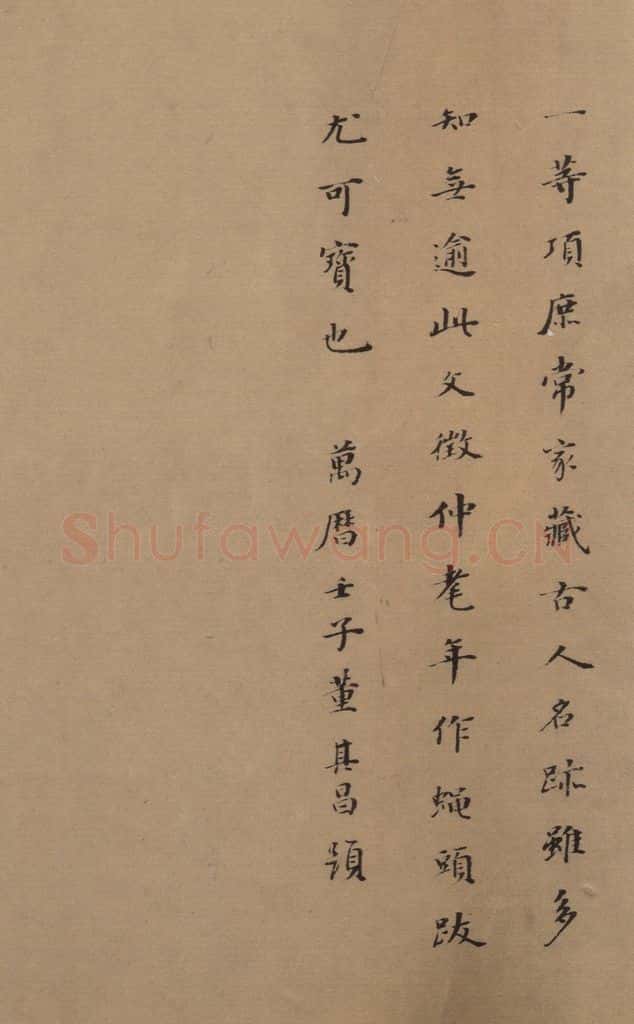 一等項庶常家藏古人名跡雖多
知無逾此文徵仲耄年作蠅頭跋
尤可寶也 萬曆壬子董其昌題
Shufawang.CN